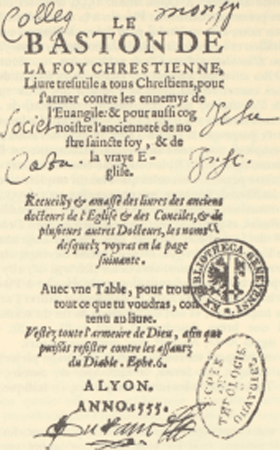 Colleg
LE
BASTON DE
LA FOY CHRESTIENNE,
Liure tresutile a tous Chrestiens, pour
s'armer contre les ennemys de
l'Euangile: & pour aussi cog
noistre l'ancienneté de no
stre saincte foy, & de
la vraye E-
glise.
Societ
Jesu
Recueilly & amassé des liures des anciens
docteurs de l'Eglise & des Conciles, & de
plusieurs autres Docteurs, les noms
desquelz voyras en la page
suiuante.
EX BIBLIOTHECA GENEVENSI
Auec vne Table, pour trouuer
tout ce que tu voudras, con
tenu au liure.
Vestez toute l'armeure de Dieu, afin que
puissiés resister contre les assautz
du Diable. Ephe. 6.
A LYON.
ANNO 1555.